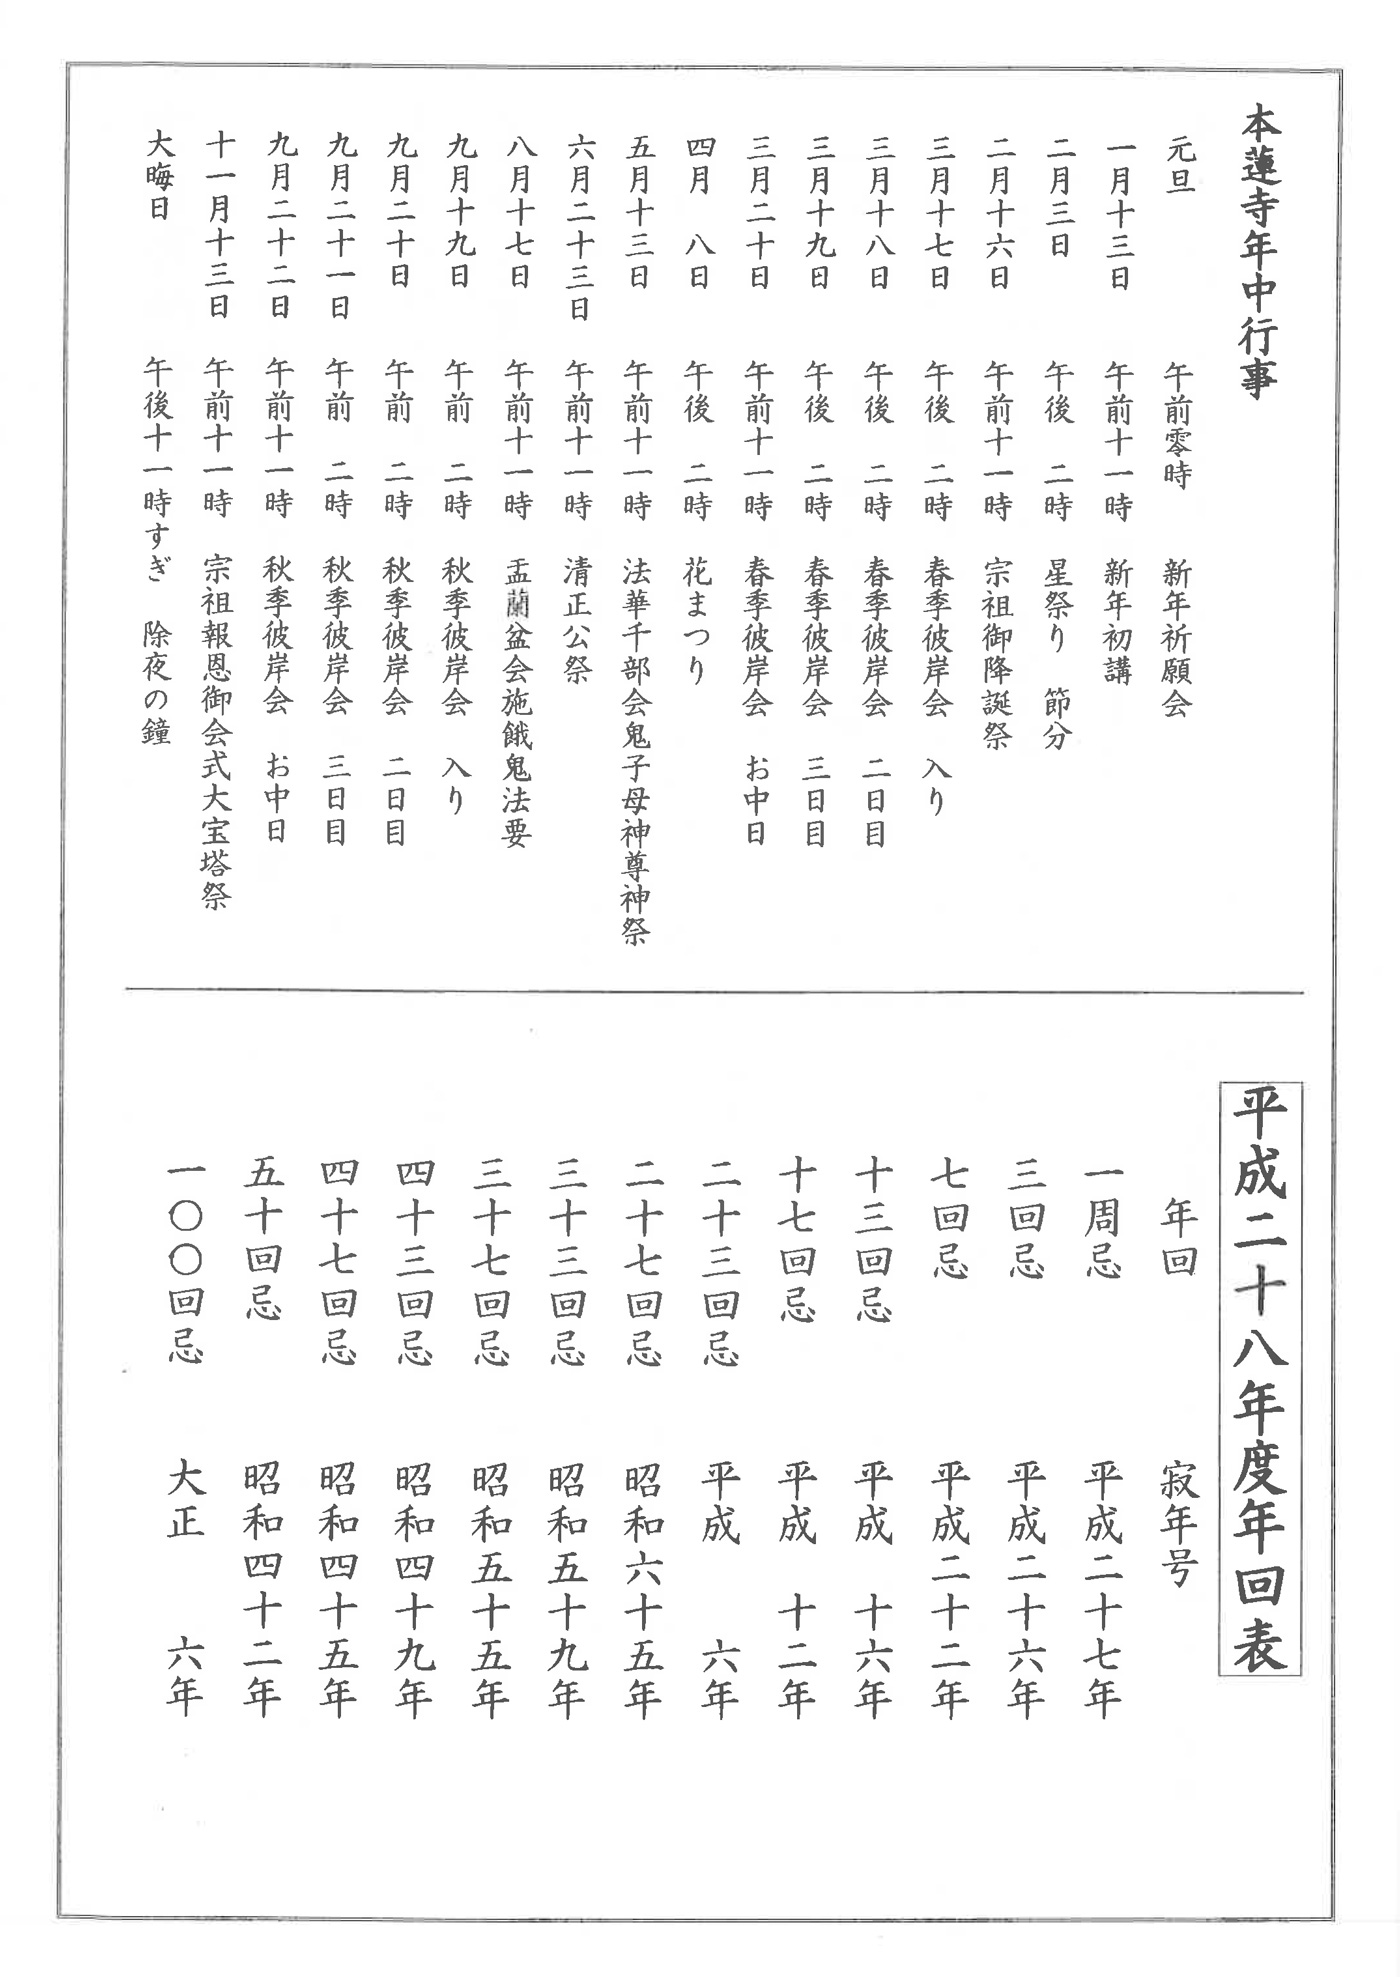 本蓮寺年中行事
元旦 午前零時 新年祈願会
一月十三日 午前十一時 新年初講
二月三日 午後 二時 星祭り 節分
二月十六日 午前十一時 宗祖御降誕祭
三月十七日 午後 二時 春季彼岸会 入り
三月十八日 午後 二時 春季彼岸会 二日目
三月十九日 午後 二時 春季彼岸会 三日目
三月二十日 午前十一時 春季彼岸会 お中日
四月 八日 午後 二時 花まつり
五月十三日 午前十一時 法華千部会鬼子母神尊神祭
六月二十三日 午前十一時 清正公祭
八月十七日 午前十一時 盂蘭盆会施餓鬼法要
九月十九日 午前 二時 秋季彼岸会 入り
九月二十日 午前 二時 秋季彼岸会 二日目
九月二十一日 午前 二時 秋季彼岸会 三日目
九月二十二日 午前十一時 秋季彼岸会 お中日
十一月十三日 午前十一時 宗祖報恩御会式大宝塔祭
大晦日 午後十一時すぎ 除夜の鐘
平成二十八年度年回表
年回 寂年号
一周忌 平成二十七年
三回忌 平成二十六年
七回忌 平成二十二年
十三回忌 平成 十六年
十七回忌 平成 十二年
二十三回忌 平成 六年
二十七回忌 昭和六十五年
三十三回忌 昭和五十九年
三十七回忌 昭和五十五年
四十三回忌 昭和四十九年
四十七回忌 昭和四十五年
五十回忌 昭和四十二年
一〇〇回忌 大正 六年